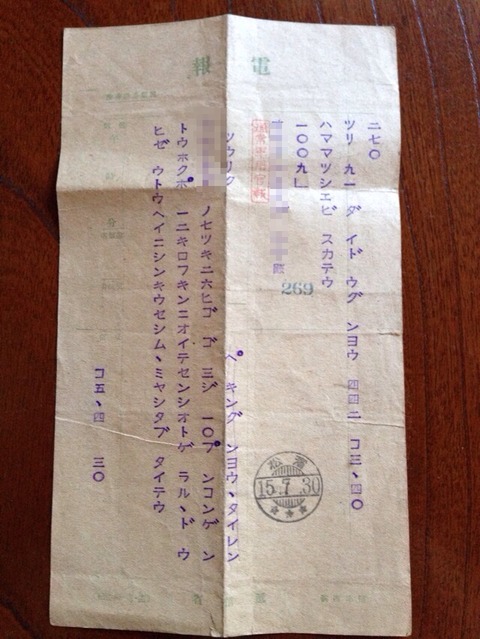 電報
二七〇
ツリ 九一 ダイドウグンヨウ 四四二 コ三、四〇
ハママツシエビスカテウ
一〇〇九」
殿
269
ペキングンヨウ、タイレン
ソウリク
ノセツキニ六ヒゴゴ三ジ一〇プンコンゲン
トウホクポ一二キロフキンニオイテセンシオトゲラル、ドウ
ヒゼウトウヘイニシンキウセシム、ミヤシタブタイテウ
コ五、四 三〇
濱松
15.7.30